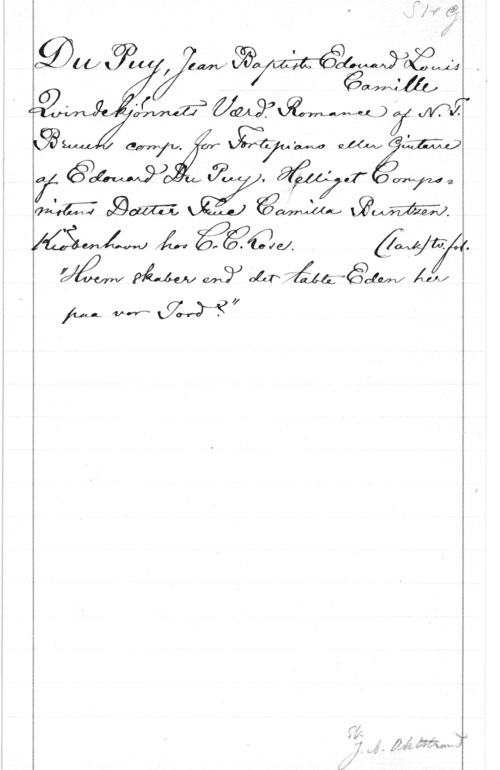 SHG
Du Puy, Jean Baptiste Edouard Louis
Camille
Qvindekjönnets Værd. Romance af N. T.
Bruun comp. for Fortepiano eller Guitarre
af Edouard Du Puy. Helliget Compo=
nistens Datter Frue Camilla Buntzen.
Kiöbenhavn hos C. C. Lose. (1 ark) tv. fol.
"Hvem skaber end det tabte Eden her
paa vor Jord?"
J. A. Ahlstrand